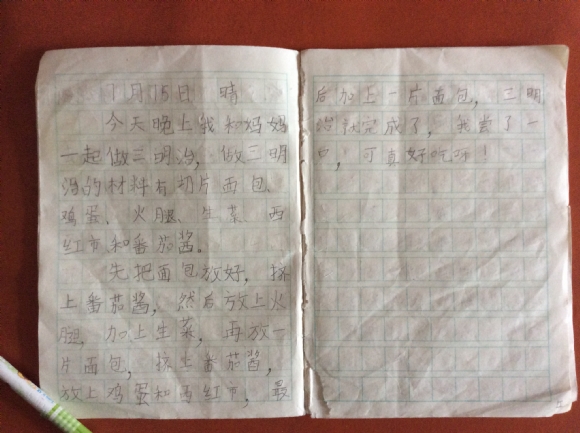 1月15日 晴
今天晚上我和妈妈
一起做三明治，做三明
治的材料有切片面包、
鸡蛋、火腿、生菜、西
红市和番茄酱。
先把面包放好，挤
上番茄酱，然后放上火
腿，加上生菜，再放一
片面包，挤上番茄酱，
放上鸡蛋和西红市，最
后加上一片面包，三明
治就完成了，我尝了一
口，可真好吃呀！